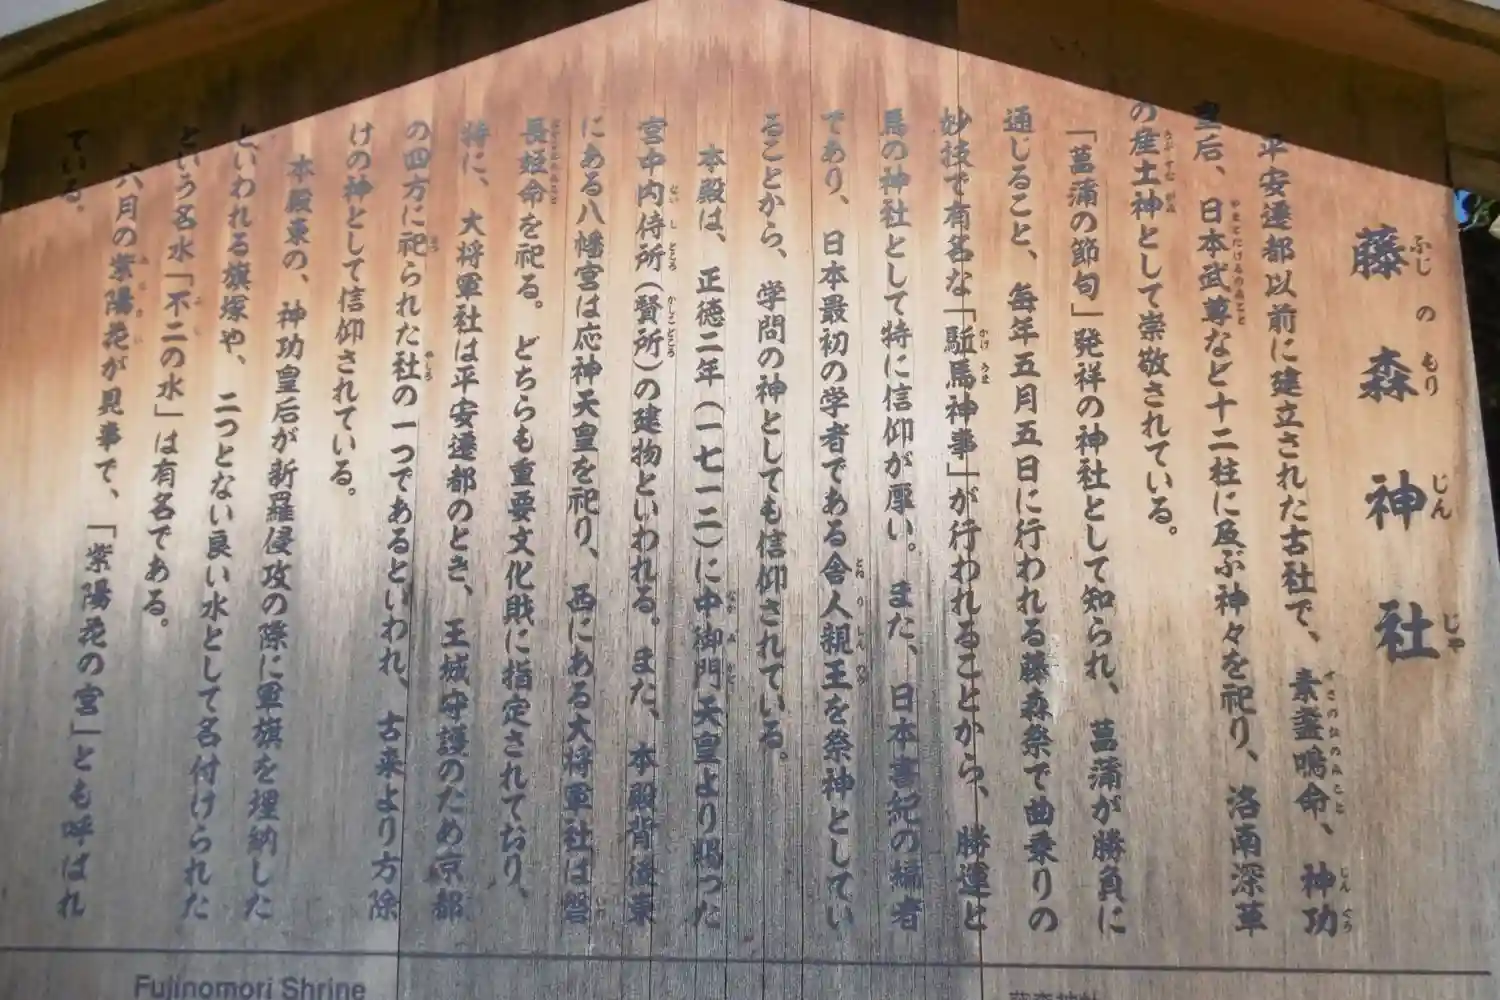 藤森神社
ふじのもりじんじゃ
平安遷都以前に建立された古社で、素盞鳴命、神功
すさのおのみこと じんぐう
皇后、日本武尊など十二柱に及ぶ神々を祀り、洛南深草
やまとたけるのみこと
の産土神として崇敬されている。
うぶすながみ
「菖蒲の節句」発祥の神社として知られ、菖蒲が勝負に
通じること、毎年五月五日に行われる藤森祭で曲乗りの
妙技で有名な「駈馬神事」が行われることから、勝運と
かけうま
馬の神社として特に信仰が厚い。また、日本書紀の編者
であり、日本最初の学者である舎人親王を祭神としてい
とねりしんのう
ることから、学問の神としても信仰されている。
本殿は、正徳二年(一七一二)に中御門天皇より賜った
なかみかど
宮中内侍所(賢所)の建物といわれる。また、本殿背後東
ないしどころ かしこどころ
にある八幡宮は応神天皇を祀り、西にある大将軍社は磐
いわ
長姫命を祀る。どちらも重要文化財に指定されており、
特に、大将軍社は平安遷都のとき、王城守護のため京都
の四方に祀られた社の一つであるといわれ、古来より方除
まつ やしろ
けの神として信仰されている。
本殿東の、神功皇后が新羅侵攻の際に軍旗を埋納した
といわれる旗塚や、二つとない良い水として名付けられた
という名水「不二の水」は有名である。
ふじ
六月の紫陽花が見事で、「紫陽花の宮」とも呼ばれ
あじさい
ている。
Fujinomori Shrine